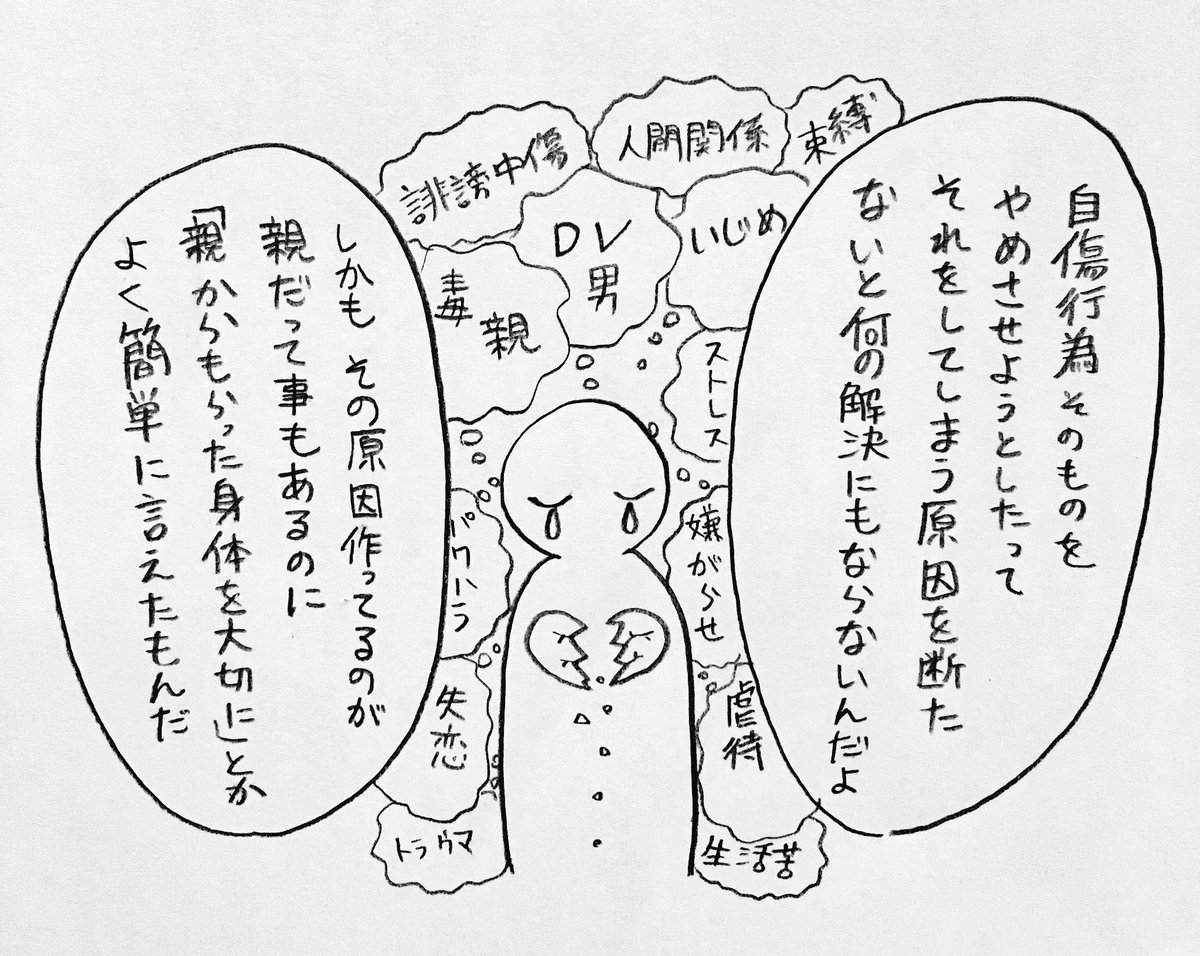 自傷行為そのものを
やめさせようとしたって
それをしてしまう原因を断た
ないと何の解決にもならないんだよ
束縛
人間関係
誹謗中傷
いじめ
DV
男
毒
親
ストレス
嫌がらせ
パワハラ
虐待
失恋
生活苦
トラウマ
しかも その原因作ってるのが
親だって事もあるのに
「親からもらった身体を大切に」とか
よく簡単に言えたもんだ